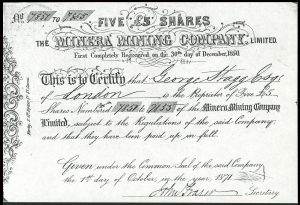 No. 7851 TO 7855
FIVE £5 SHARES
THE MINERA MINING COMPANY, LIMITED.
First Completely Registered on the 30th day of December, 1850.
This is to Certify that George Stagg Esqr.
London is the Proprietor of Five £5
Shares Numbered 7851 to 7855 of the Minera Mining Company
Limited, subject to the Regulations of the said Company;
and that they have been paid up in full.
Given under the Common Seal of the said Company
the 1st day of October, in the year 1871
John Fraser
Secretary